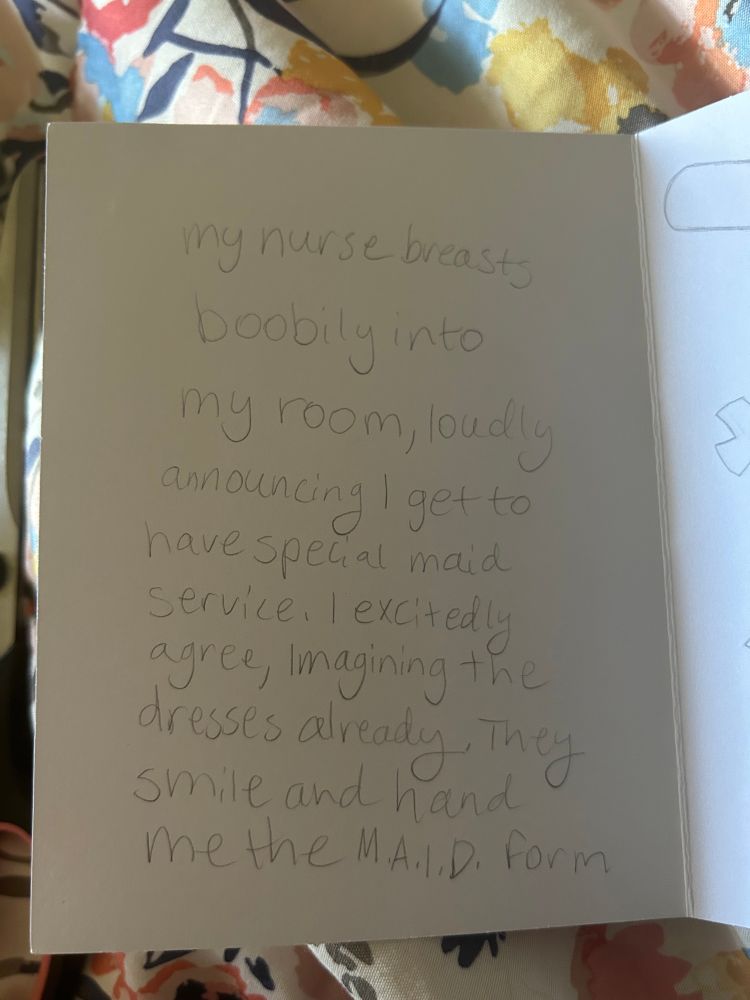 my nurse breasts
boobily into
my room, loudly
announcing I get to
have special maid
service. I excitedly
agree, Imagining the
dresses already. They
smile and hand
me the M.A.I.D. form